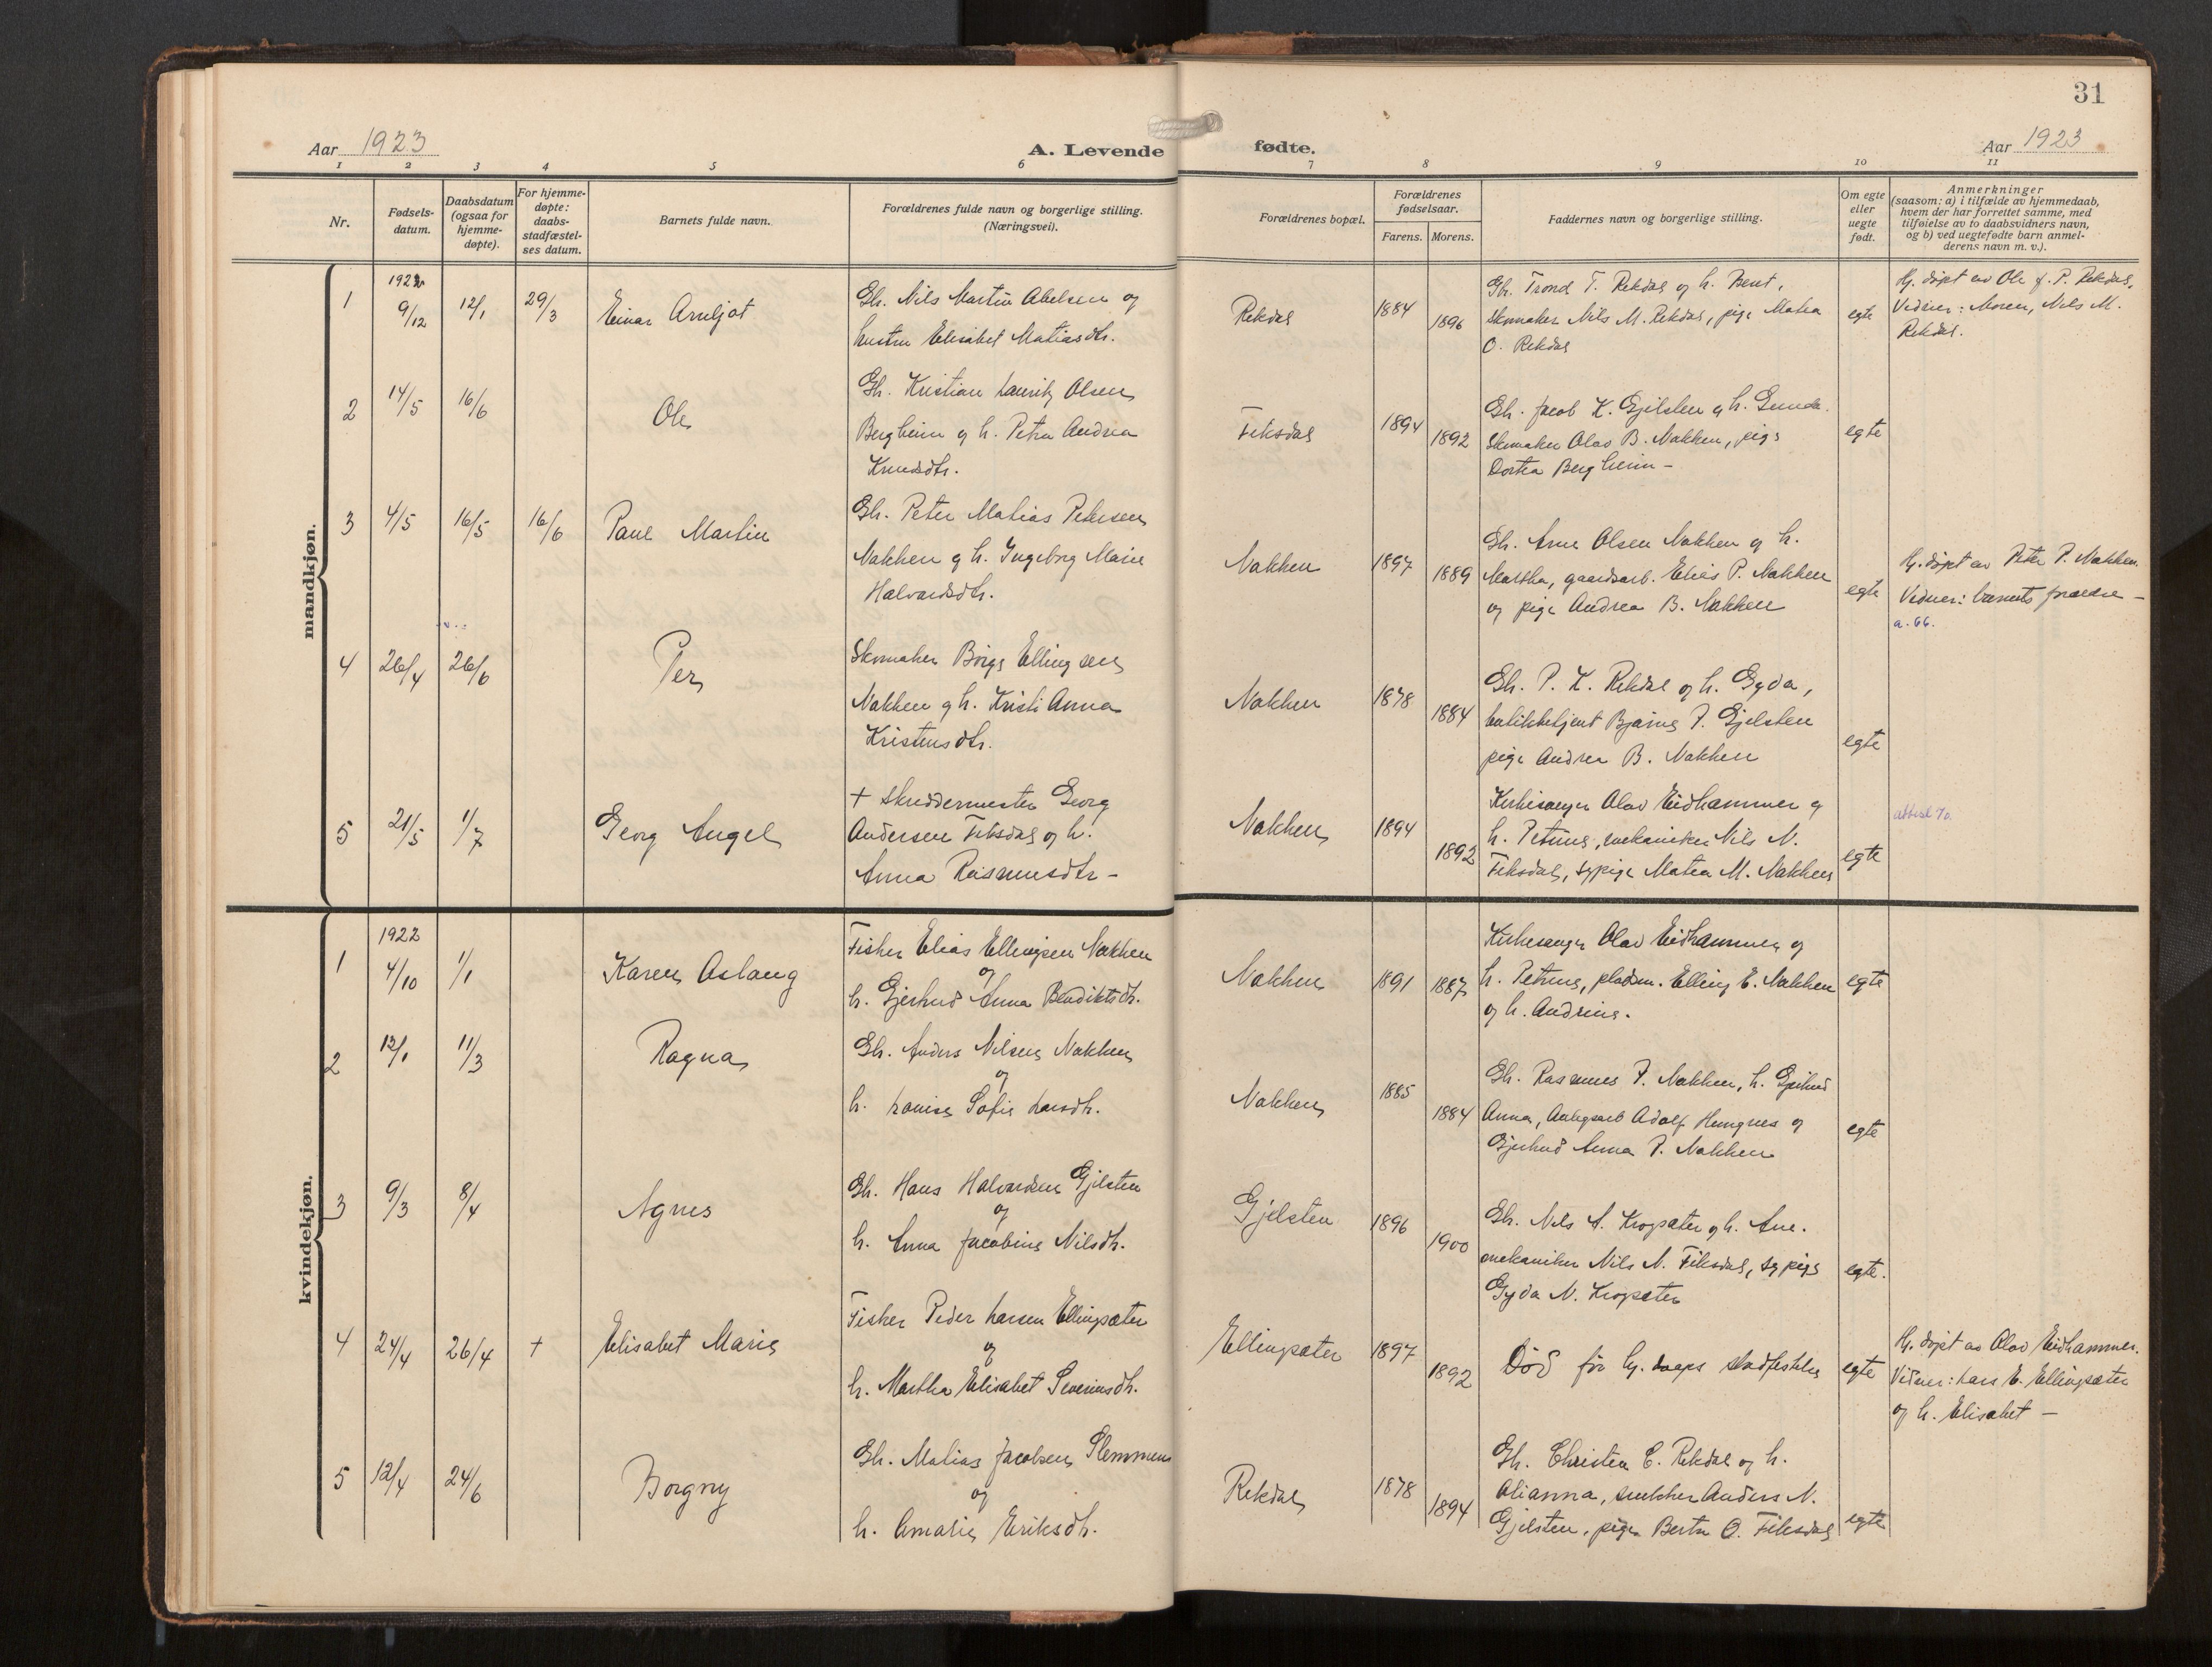 31
Aar 1923
A. Levende
fødte.
Aar 1923
1 2 3 4 5 6 7 8 9 10 11
Nr.
Fødsels-
datum.
Daabsdatum
(ogsaa for
hjemme-
døpte).
For hjemme-
døpte:
daabs-
stadfæstel-
ses datum.
Barnets fulde navn.
Forældrenes fulde navn og borgerlige stilling.
(Næringsvei).
Forældrenes bopæl.
Forældrenes
fødselsaar.
Farens. Morens.
Faddernes navn og borgerlige stilling.
Om egte
eller
uegte
født.
Anmerkninger
(saasom: a) i tilfælde av hjemmedaab,
hvem der har forrettet samme, med
tilføielse av to daabsvidners navn,
og b) ved uegtefødte barn anmel-
derens navn m. v.).
mandkjøn.
1
1922
9/12
12/1
29/3
Einar Arnljot
Gb. Nils Martin Abelsen og
hustru Elisabet Matiasdtr.
Rekdal
1884
1896
Gb. Trond T. Rekdal og h. Bent,
skomaker Nils M. Rekdal, pige Matea
O. Rekdal
egte
Hj. døpt av Ole J. P. Rekdal.
Vidner: Moren, Nils M.
Rekdal.
2
14/5
16/6
Ole
Gb. Kristian Laurits Olsen
Bergheim og h. Petra Andrea
Knudsdtr.
Fiksdal
1894
1892
Gb. Jacob K. Gjelsten og h. Gunda.
Skomaker Olav B. Nakken, pige
Dortea Bergheim –
egte
3
4/5
16/5
16/6
Paul Martin
Gb. Peter Matias Petersen
Nakken og h. Ingeborg Marie
Halvardsdtr.
Nakken
1897
1889
Gb. Arne Olsen Nakken og h.
Martha, gaardsarb. Elias P. Nakken
og pige Andrea B. Nakken
egte
Hj. døpt av Peter P. Nakken.
Vidner: barnets forældre –
a. 66.
4
26/4
26/6
Per
Skomaker Børge Ellingsen
Nakken og h. Kristi Anna
Kristensdtr.
Nakken
1878
1884
Gb. P. K. Rekdal og h. Gyda,
butikbetjent Bjarne P. Gjelsten
pige Andrea B. Nakken
egte
5
21/5
1/7
Georg Angel
+ Skreddermester Georg
Andersen Fiksdal og h.
Anna Rasmusdtr –
Nakken
1894
1892
Kirkesanger Olav Eidhammer og
h. Petrine, mekaniker Nils N.
Fiksdal, sypige Matea M. Nakken
egte
attest 70.
kvindekjøn.
1
1922
4/10
1/1
Karen Aslaug
Fisker Elias Ellingsen Nakken
og
h. Gjertrud Anna Bendiktsdtr.
Nakken
1891
1887
Kirkesanger Olav Eidhammer og
h. Petrine, pladsm. Elling E. Nakken
og h. Andrine.
egte
2
12/1
11/3
Ragna
Gb. Anders Nilsen Nakken
og
h. Louise Sofie Larsdtr.
Nakken
1885
1884
Gb. Rasmus P. Nakken, h. Gjertrud
Anna, Adolf Hungnes og
Gjertrud Anna P. Nakken
egte
3
9/3
8/4
Agnes
Gb. Hans Halvardsen Gjelsten
og
h. Anna Jacobine Nilsdtr.
Gjelsten
1896
1900
Gb. Nils A. Krogsæter og h. Ane.
mekaniker Nils N. Fiksdal, sypige
Gyda N. Krogsæter
egte.
4
24/4
26/4
+
Elisabet Marie
Fisker Peder Larsen Ellingsæter
og
h. Martha Elisabet Severinsdtr.
Ellingsæter
1897
1892
Død før hj. daaps stadfestelse
egte
Hj. døpt av Olav Eidhammer.
Vidner: Lars E. Ellingsæter
og h. Elisabet –
5
12/4
24/6
Borgny
Gb. Matias Jacobsen Slemmen
og
h. Amalie Eriksdtr.
Rekdal
1878
1894
Gb. Christen C. Rekdal og h.
Olianna, snekker Anders N.
Gjelsten, pige Berta O. Fiksdal
egte